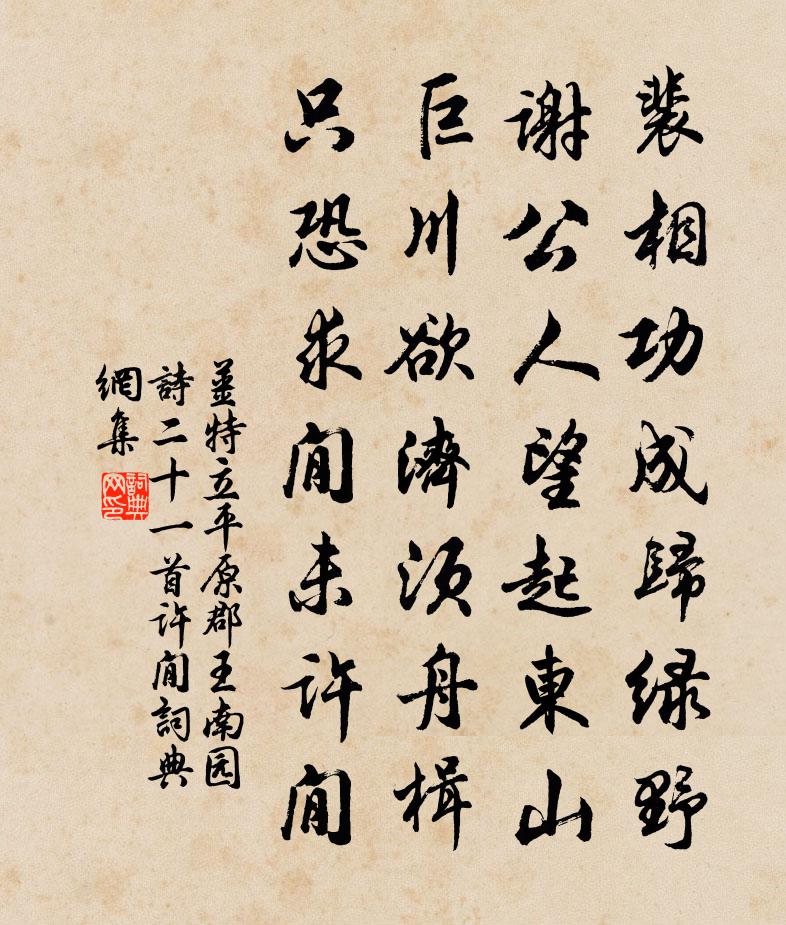 裴相功成歸绿野
謝公人望起東山
巨川欲濟須舟楫
只恐求閒未許閒
姜特立平原郡王南园
詩二十一首許閒詞典
網集
詞典
网印